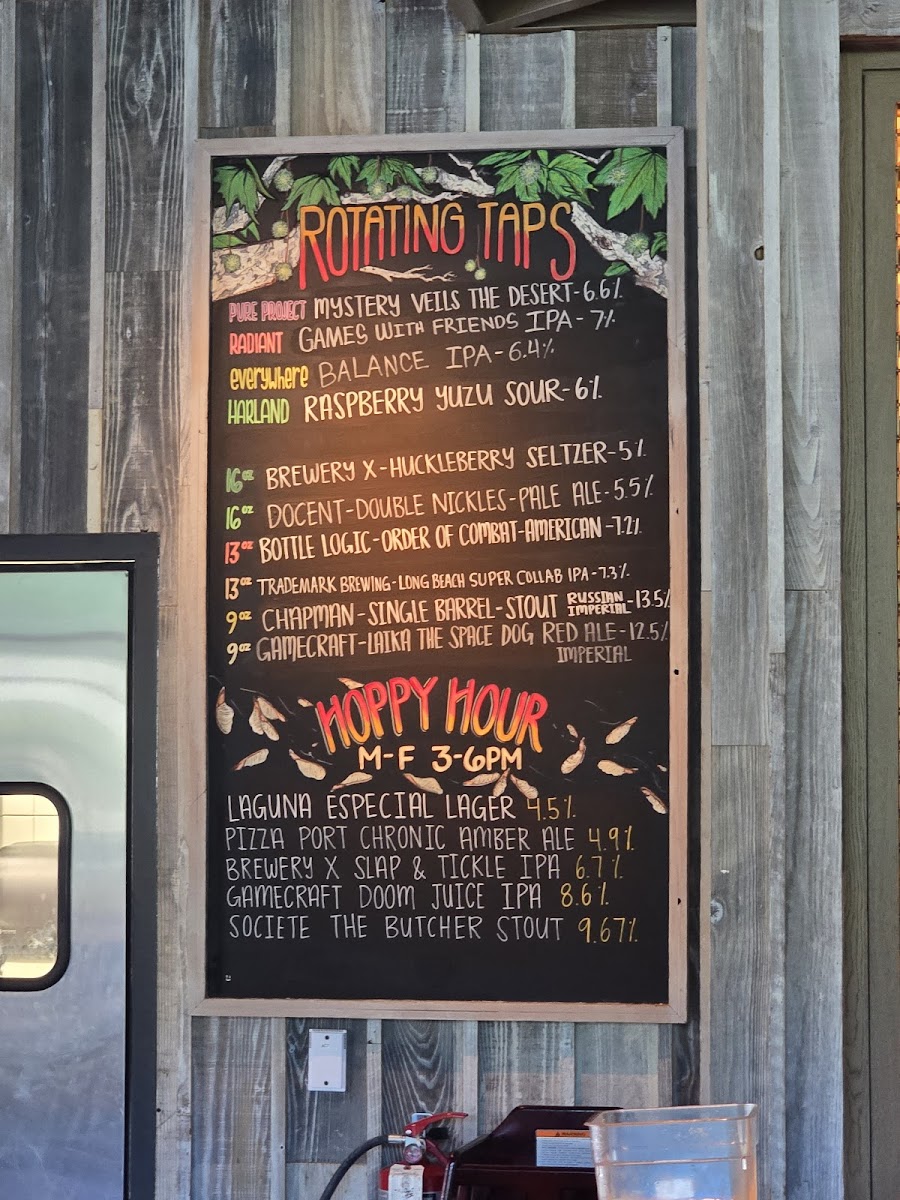 ROTATING TAPS
PURE PROJECT MYSTERY VEILS THE DESERT-6.6%
RADIANT GAMES WITH FRIENDS IPA-7%
everywhere BALANCE IPA-6.4%
HARLAND RASPBERRY YUZU SOUR-6%
16oz BREWERY X-HUCKLEBERRY SELTZER-5%
16oz DOCENT-DOUBLE NICKLES-PALE ALE-5.5%
13oz BOTTLE LOGIC-ORDER OF COMBAT-AMERICAN-7.2%
13oz TRADEMARK BREWING-LONG BEACH SUPER COLLAB IPA-7.3%
9oz CHAPMAN-SINGLE BARREL-STOUT RUSSIAN IMPERIAL-13.5%
9oz GAMECRAFT-LAIKA THE SPACE DOG RED ALE-12.5%
IMPERIAL
HOPPY HOUR
M-F 3-6PM
LAGUNA ESPECIAL LAGER 4.5%
PIZZA PORT CHRONIC AMBER ALE 4.9%
BREWERY X SLAP & TICKLE IPA 6.7%
GAMECRAFT DOOM JUICE IPA 8.6%
SOCIETE THE BUTCHER STOUT 9.67%